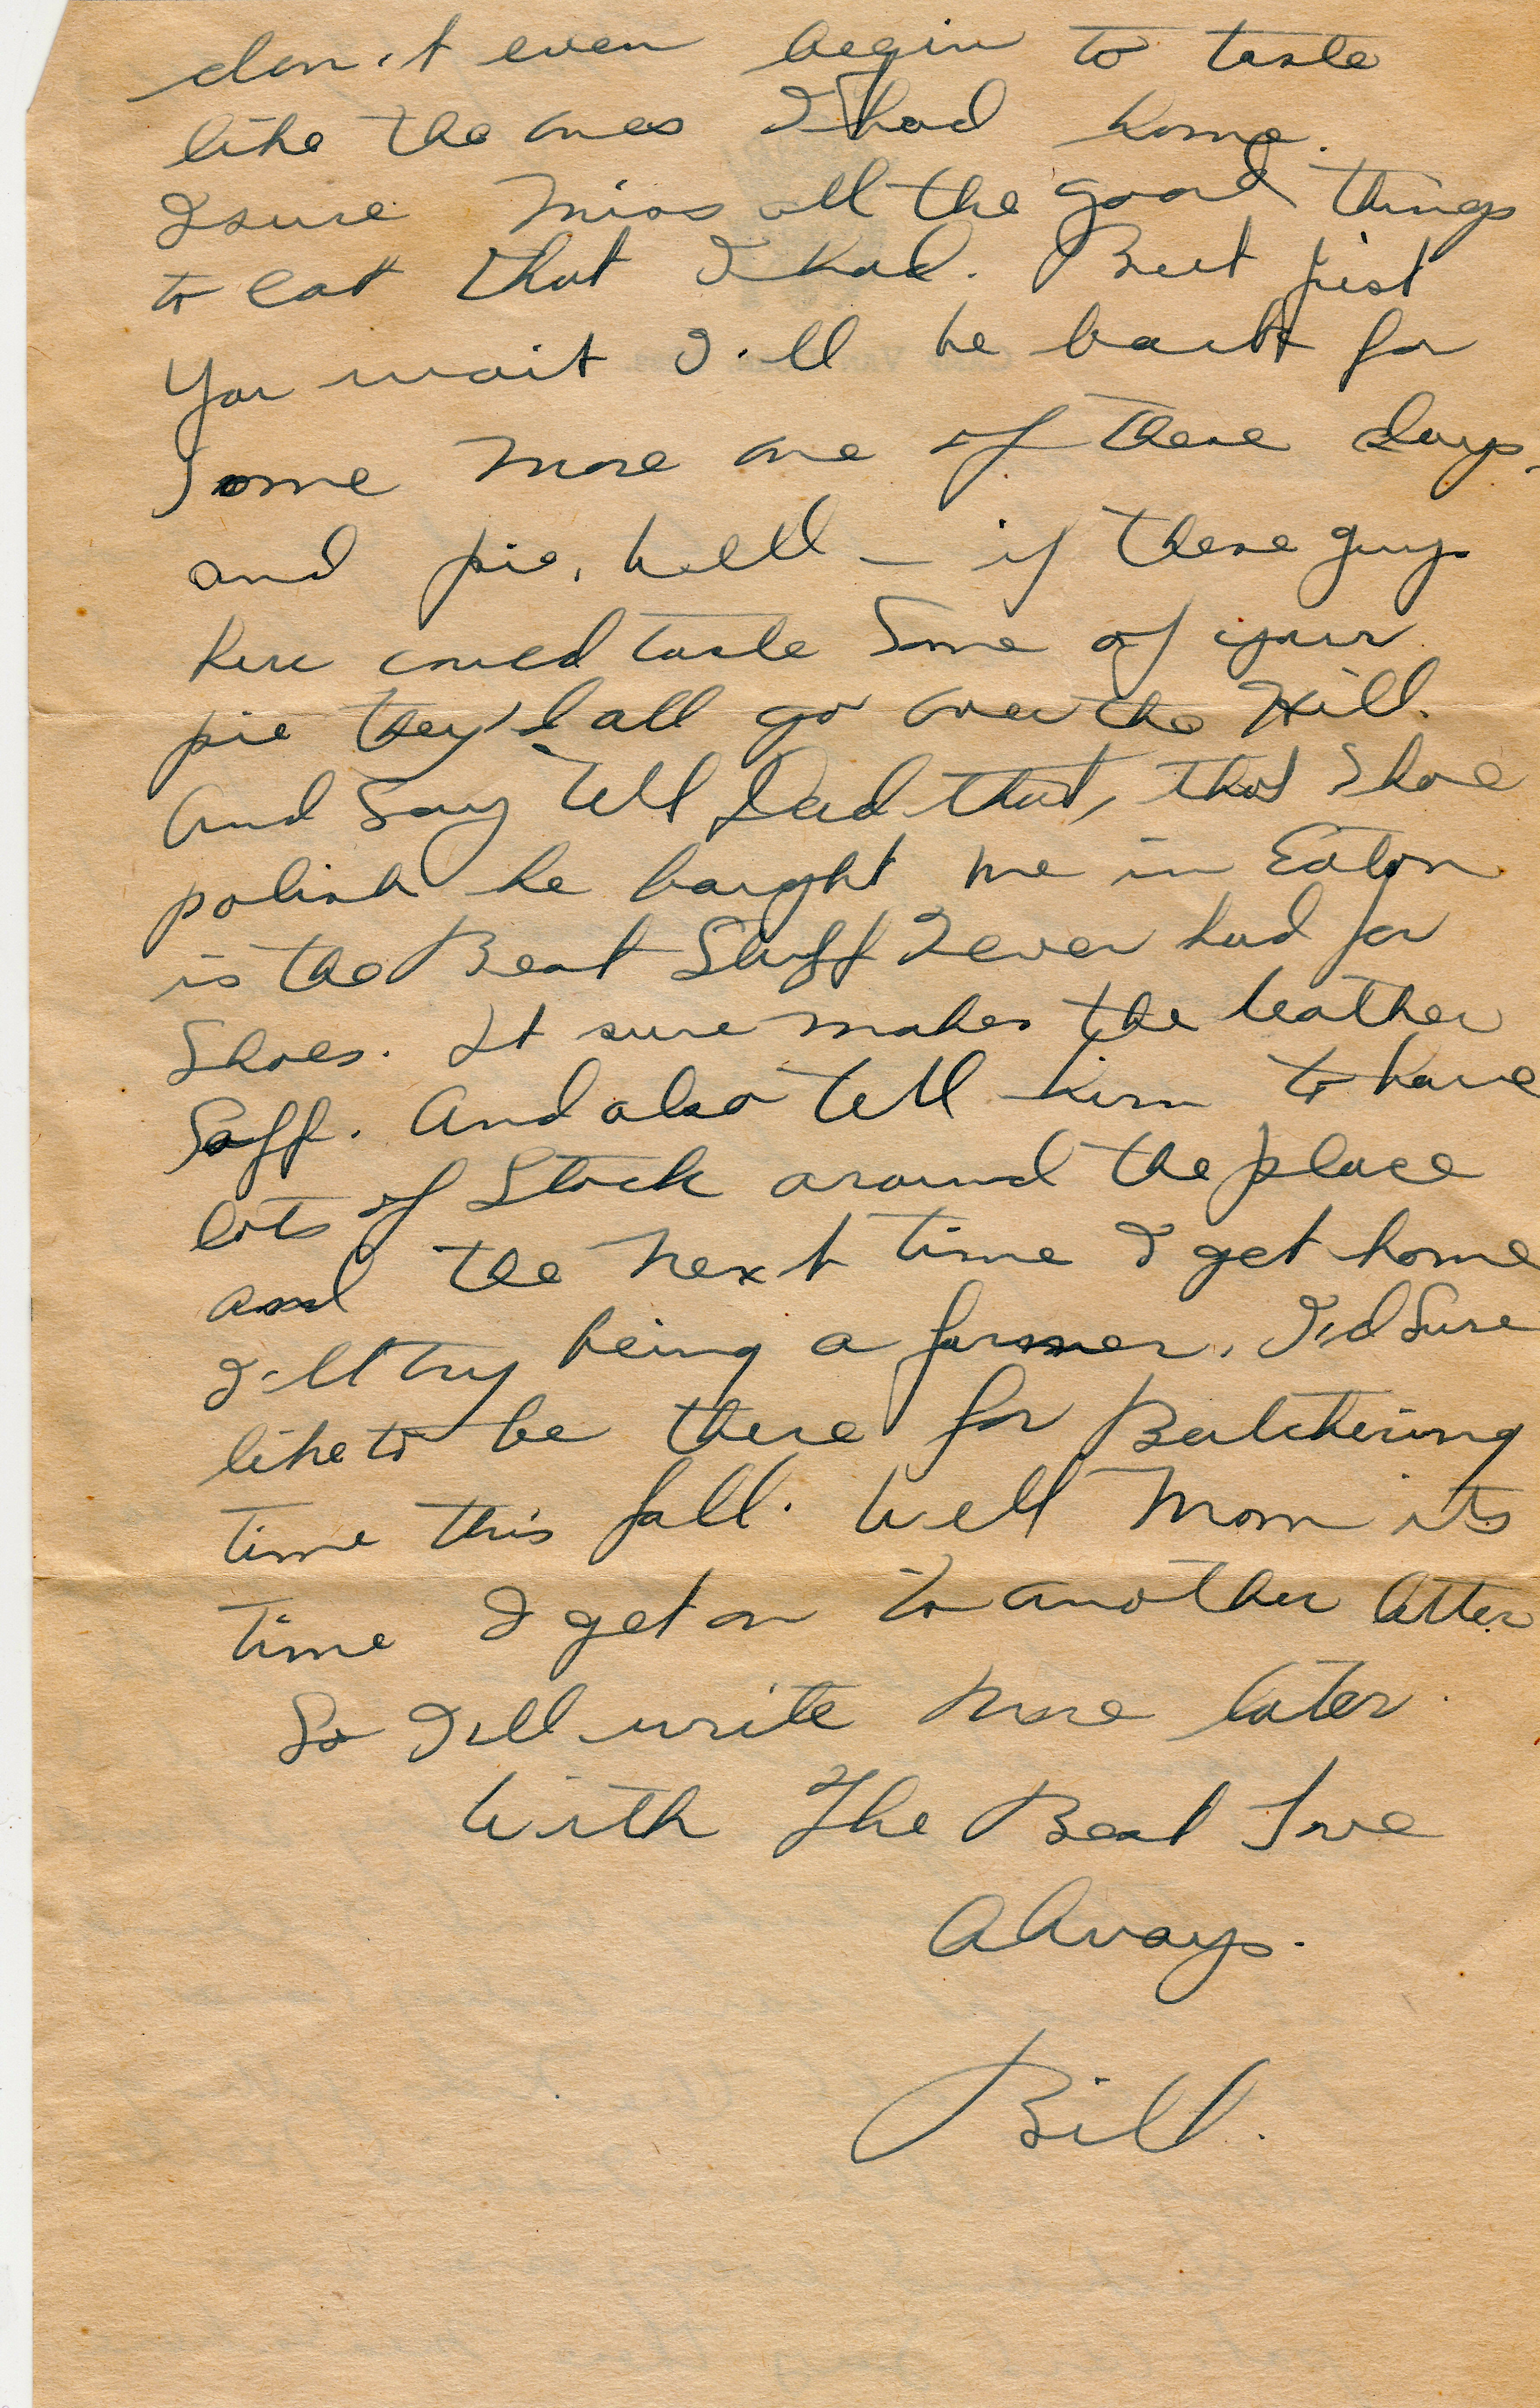 don't even begin to taste
like the ones I had home.
I sure miss all the good things
to eat that I had. But just
You wait I'll be back for
Some more one of these days.
and pie, well - if these guys
here could taste Some of your
pie they'd all go over the Hill.
And Say Tell Dad that, that Shoe
polish he bought me in Eaton
is the Best Stuff I ever had for
Shoes. It sure makes the leather
Soft. And also Tell him to have
lots of Stock around the place
and the next time I get home
I'll try being a farmer. I'd Sure
like to be there for Butchering
time this fall. Well Mom its
time I get on to another letter
So I'll write more later.
With The Best Love
Always.
Bill.